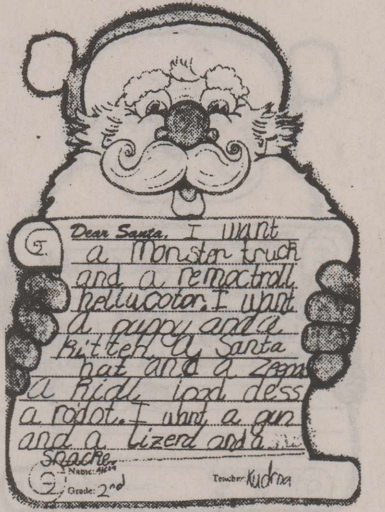 Dear Santa, I want
a monster truck
and a remoctroll
hellucoter. I want
a puppy and a
kitten, a Santa
hat and a
a ipod dess
a rodot. I want a gun
and a lizerd and a
snacke
Name:
Teacher: Kudrna
Grade: 2nd